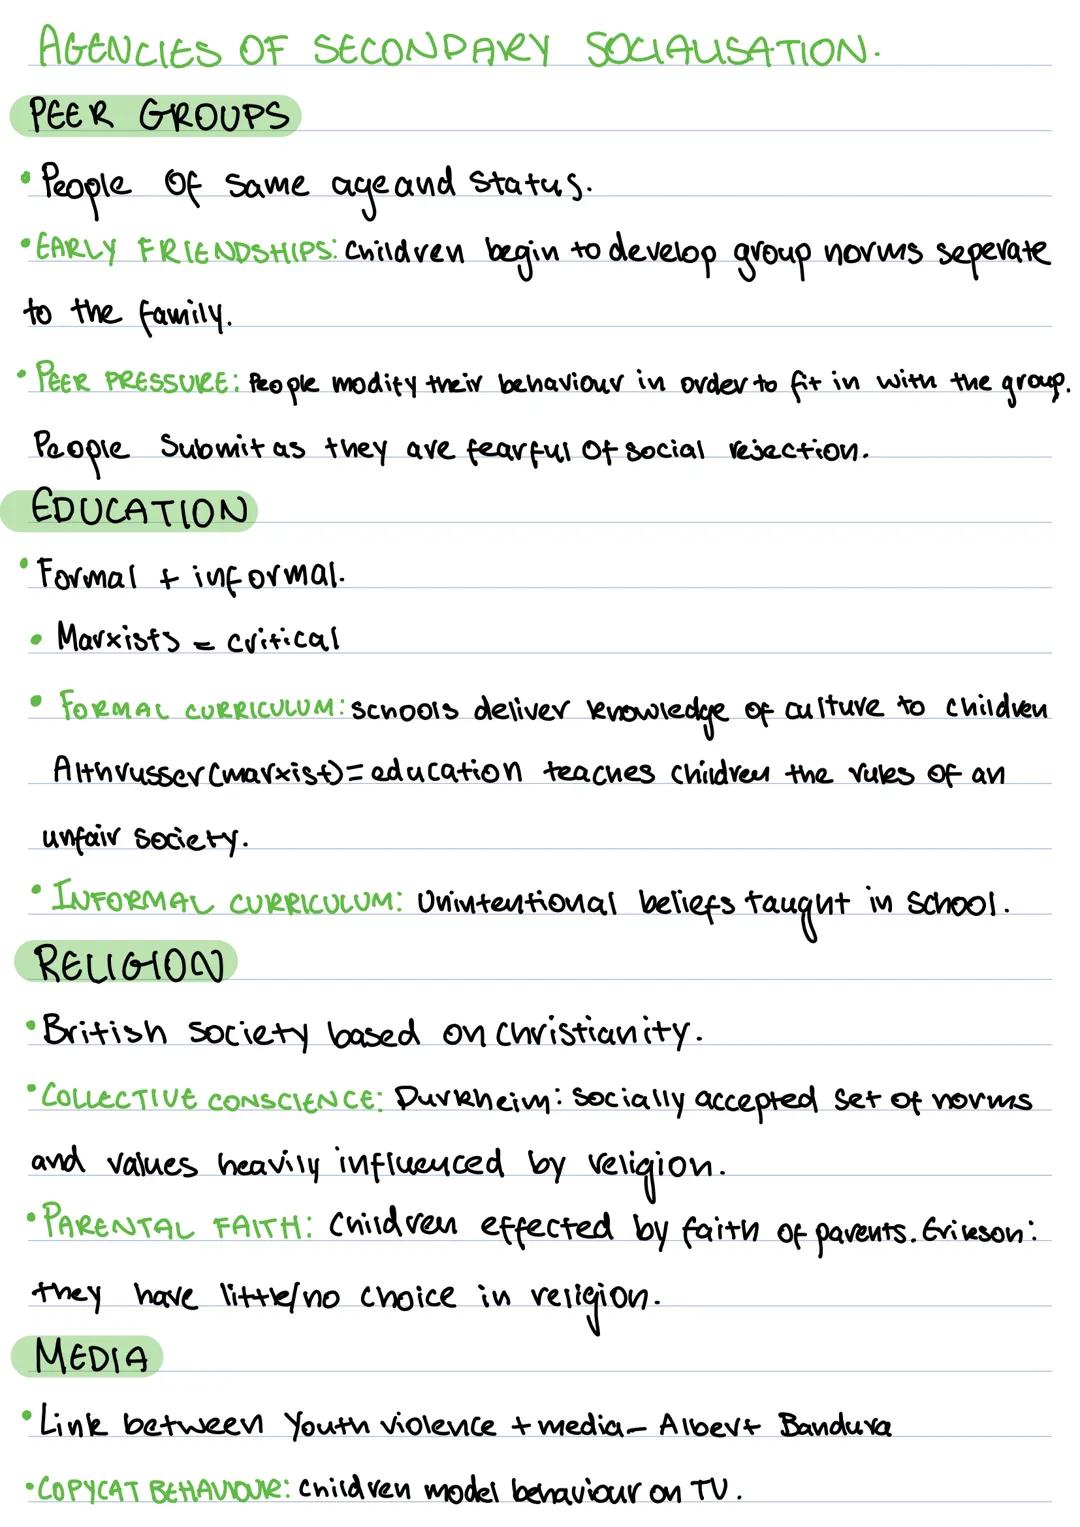 AGENCIES OF SECONDARY SOCIALISATION.
PEER GROUPS
• People of same age and status.
• EARLY FRIENDSHIPS: Children begin to develop group norms seperate
to the family.
• PEER PRESSURE: People modify their behaviour in order to fit in with the group.
People submit as they are fearful of social rejection.
EDUCATION
• Formal + informal.
• Marxists = critical
• FORMAL CURRICULUM: schools deliver knowledge of culture to children
Althrusser (marxist) = education teaches children the rules of an
unfair society.
• INFORMAL CURRICULUM: Unintentional beliefs taught in school.
RELIGION
• British society based on Christianity.
• COLLECTIVE CONSCIENCE: Durkheim: Socially accepted set of norms
and values heavily influenced by religion.
• PARENTAL FAITH: Children effected by faith of parents. Erikson:
they have little/no choice in religion.
MEDIA
• Link between youth violence + media - Albert Bandura
• COPYCAT BEHAVIOUR: Children model behaviour on TV.